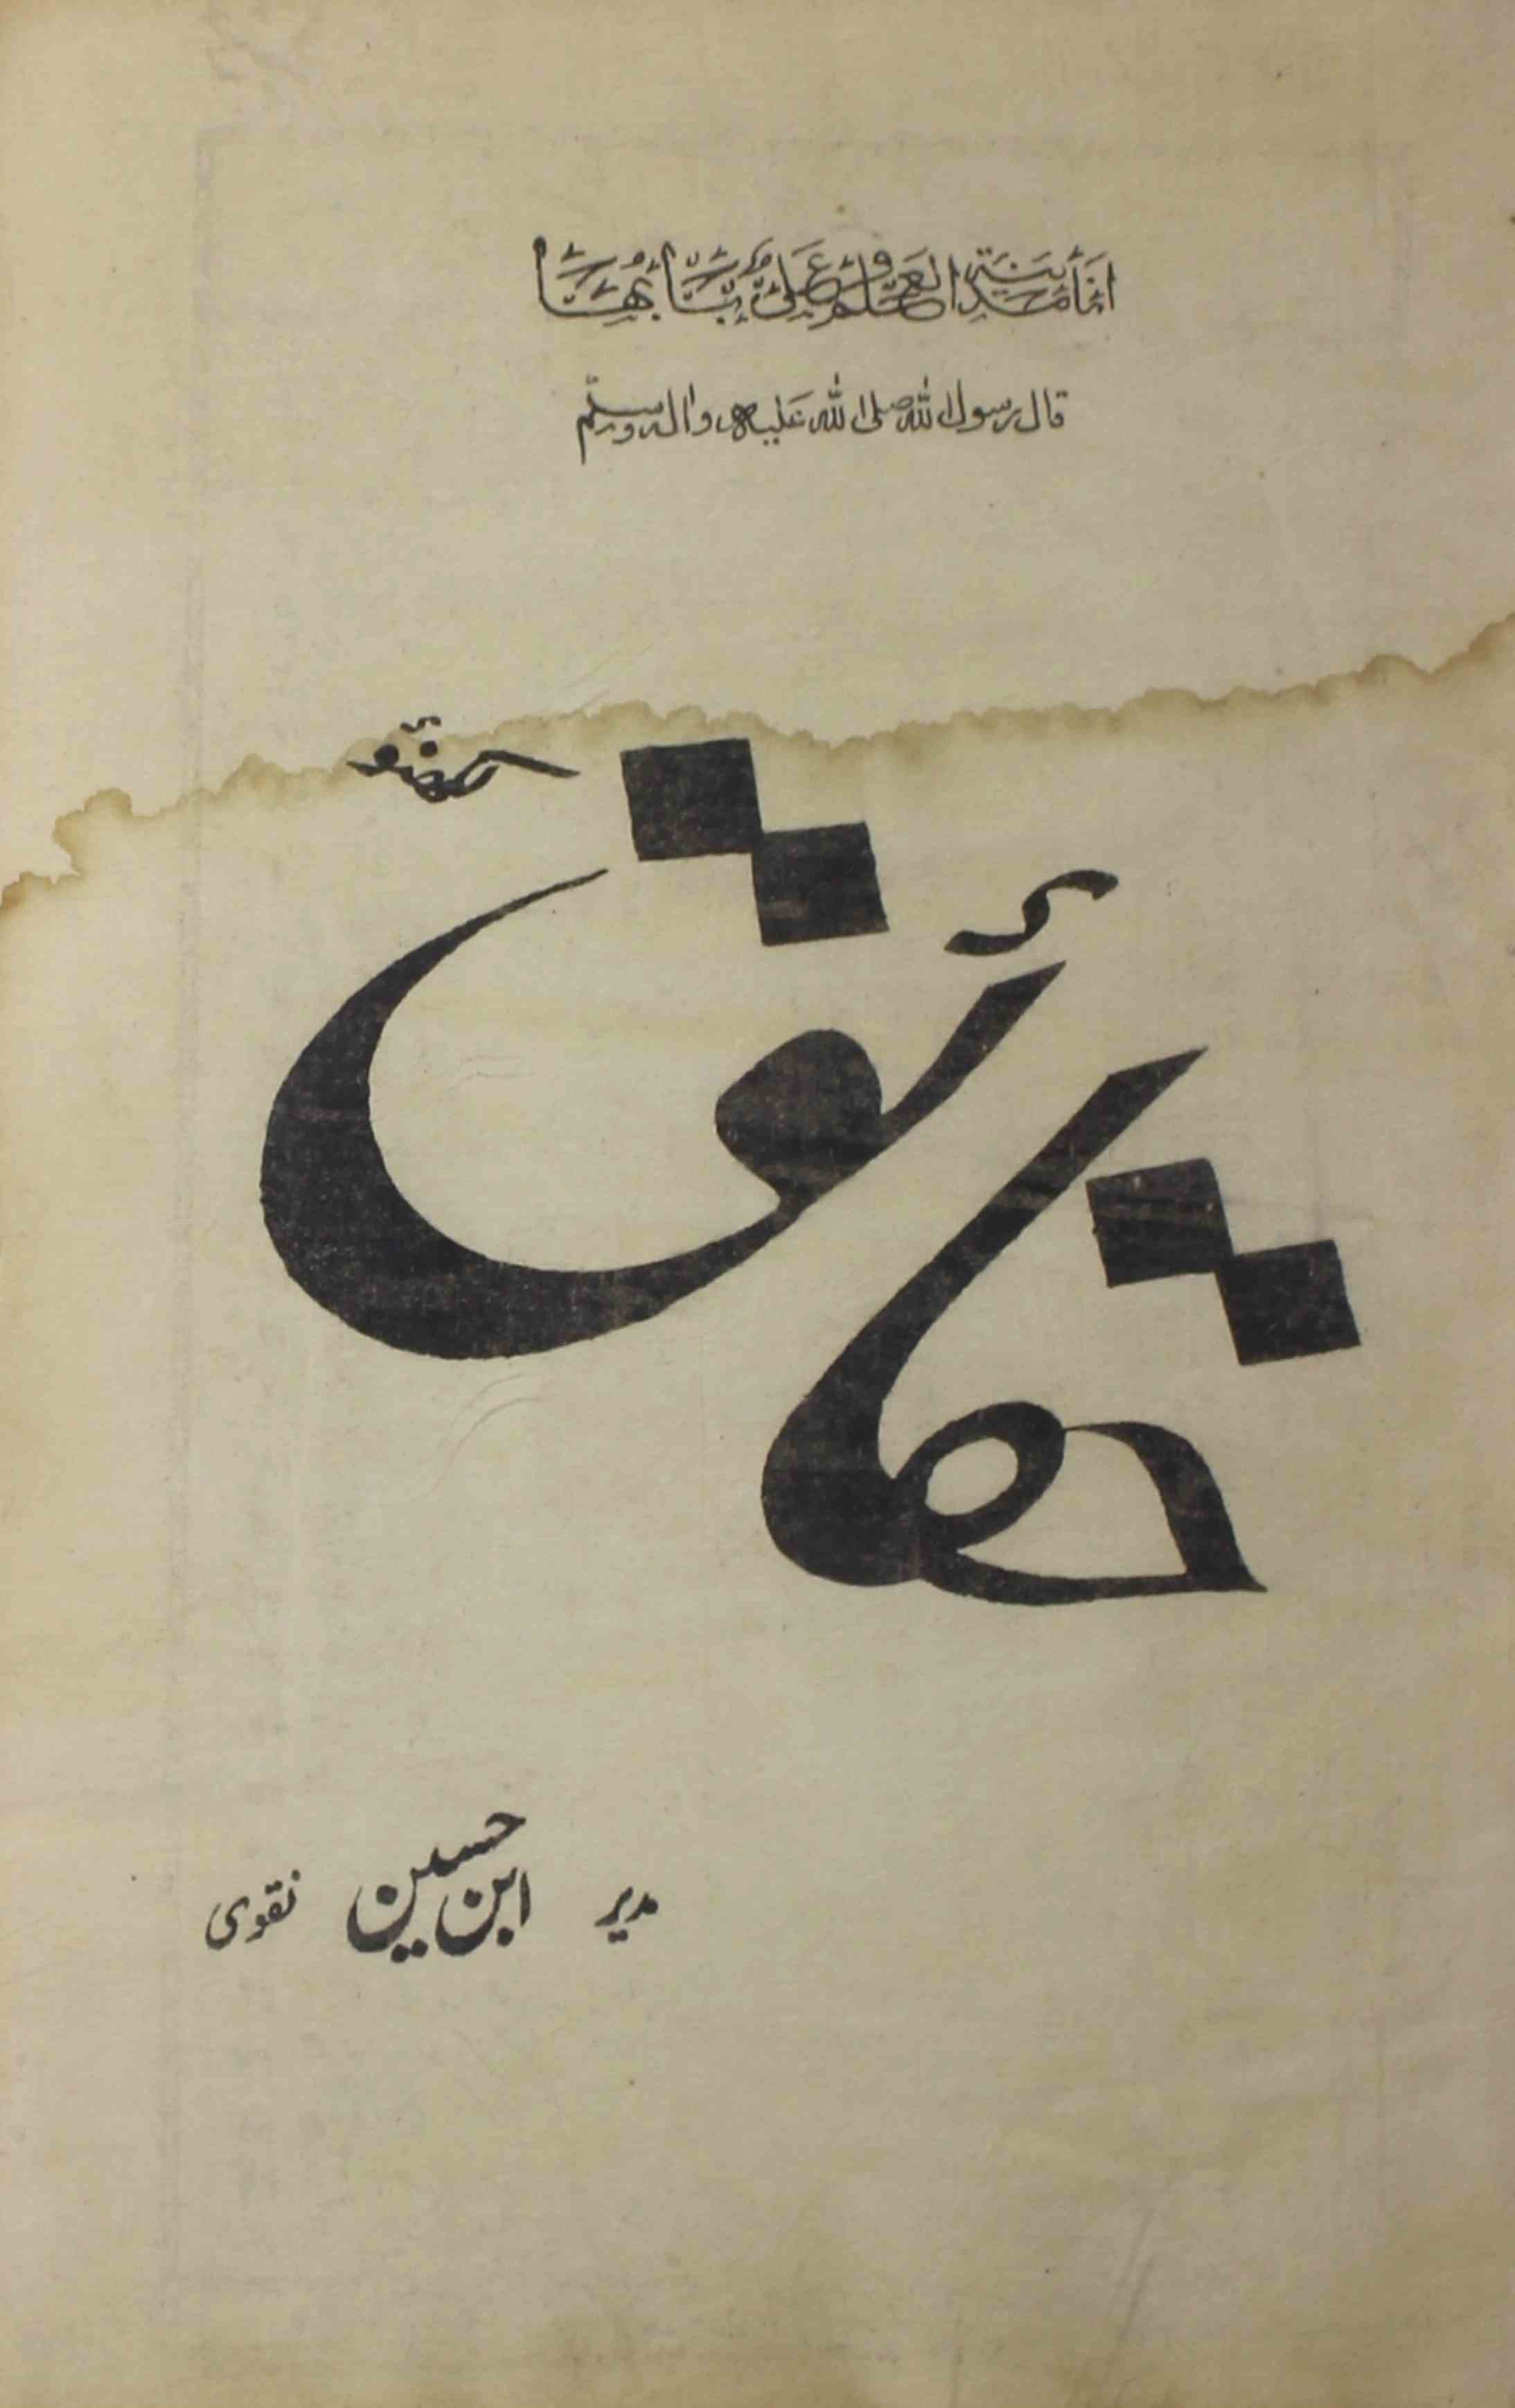 انا مدینة العلم و علی بابها
قال رسول الله صلی الله علیه واله وسلم
لکھنؤ
حقائق
مدیر ابن حسین نقوی